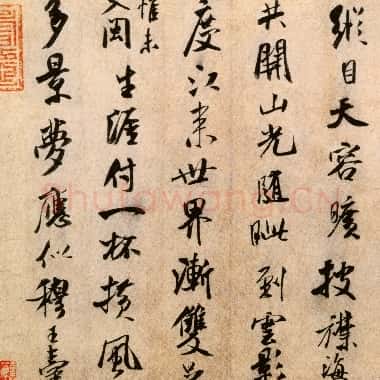 縱目天容曠披襟海
共開山光隨眦到雲影
度江来世界漸雙
惟未
生涯付一杯橫風
多景夢應似穆王
Shufawang.CN